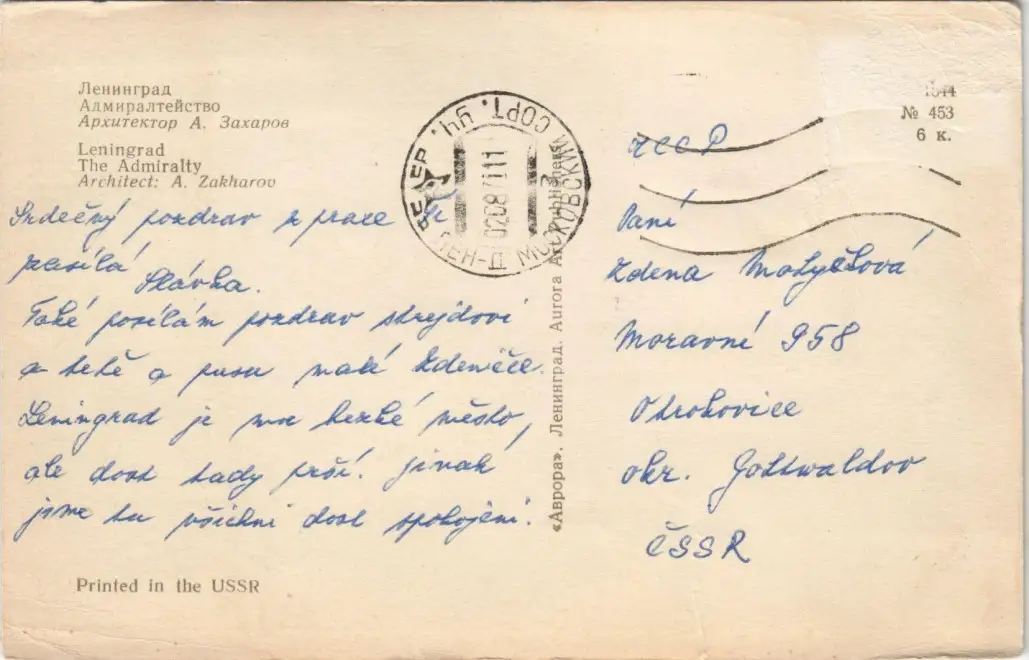 Ленинград
Адмиралтейство
Архитектор А. Захаров
Leningrad
The Admiralty
Architect: A. Zakharov
Srdečný pozdrav z prace
zasílá
Slávka.
Také posílám pozdrav strejdovi
a tetě a pusu malé Zdeněče.
Leningrad je moc hezké město,
ale dost tady prší. jinak
jsme tu všichni dost spokojeni.
Printed in the USSR
«Аврора». Ленинград. Aurora Publishers
СОРТ.
0208 111
ЛЕН-Д МОСКОВСКИЙ
№ 453
6 к.
ЧССР
Paní
Zdena
Moravní 958
Otrokovice
okr. Gottwaldov
ČSSR